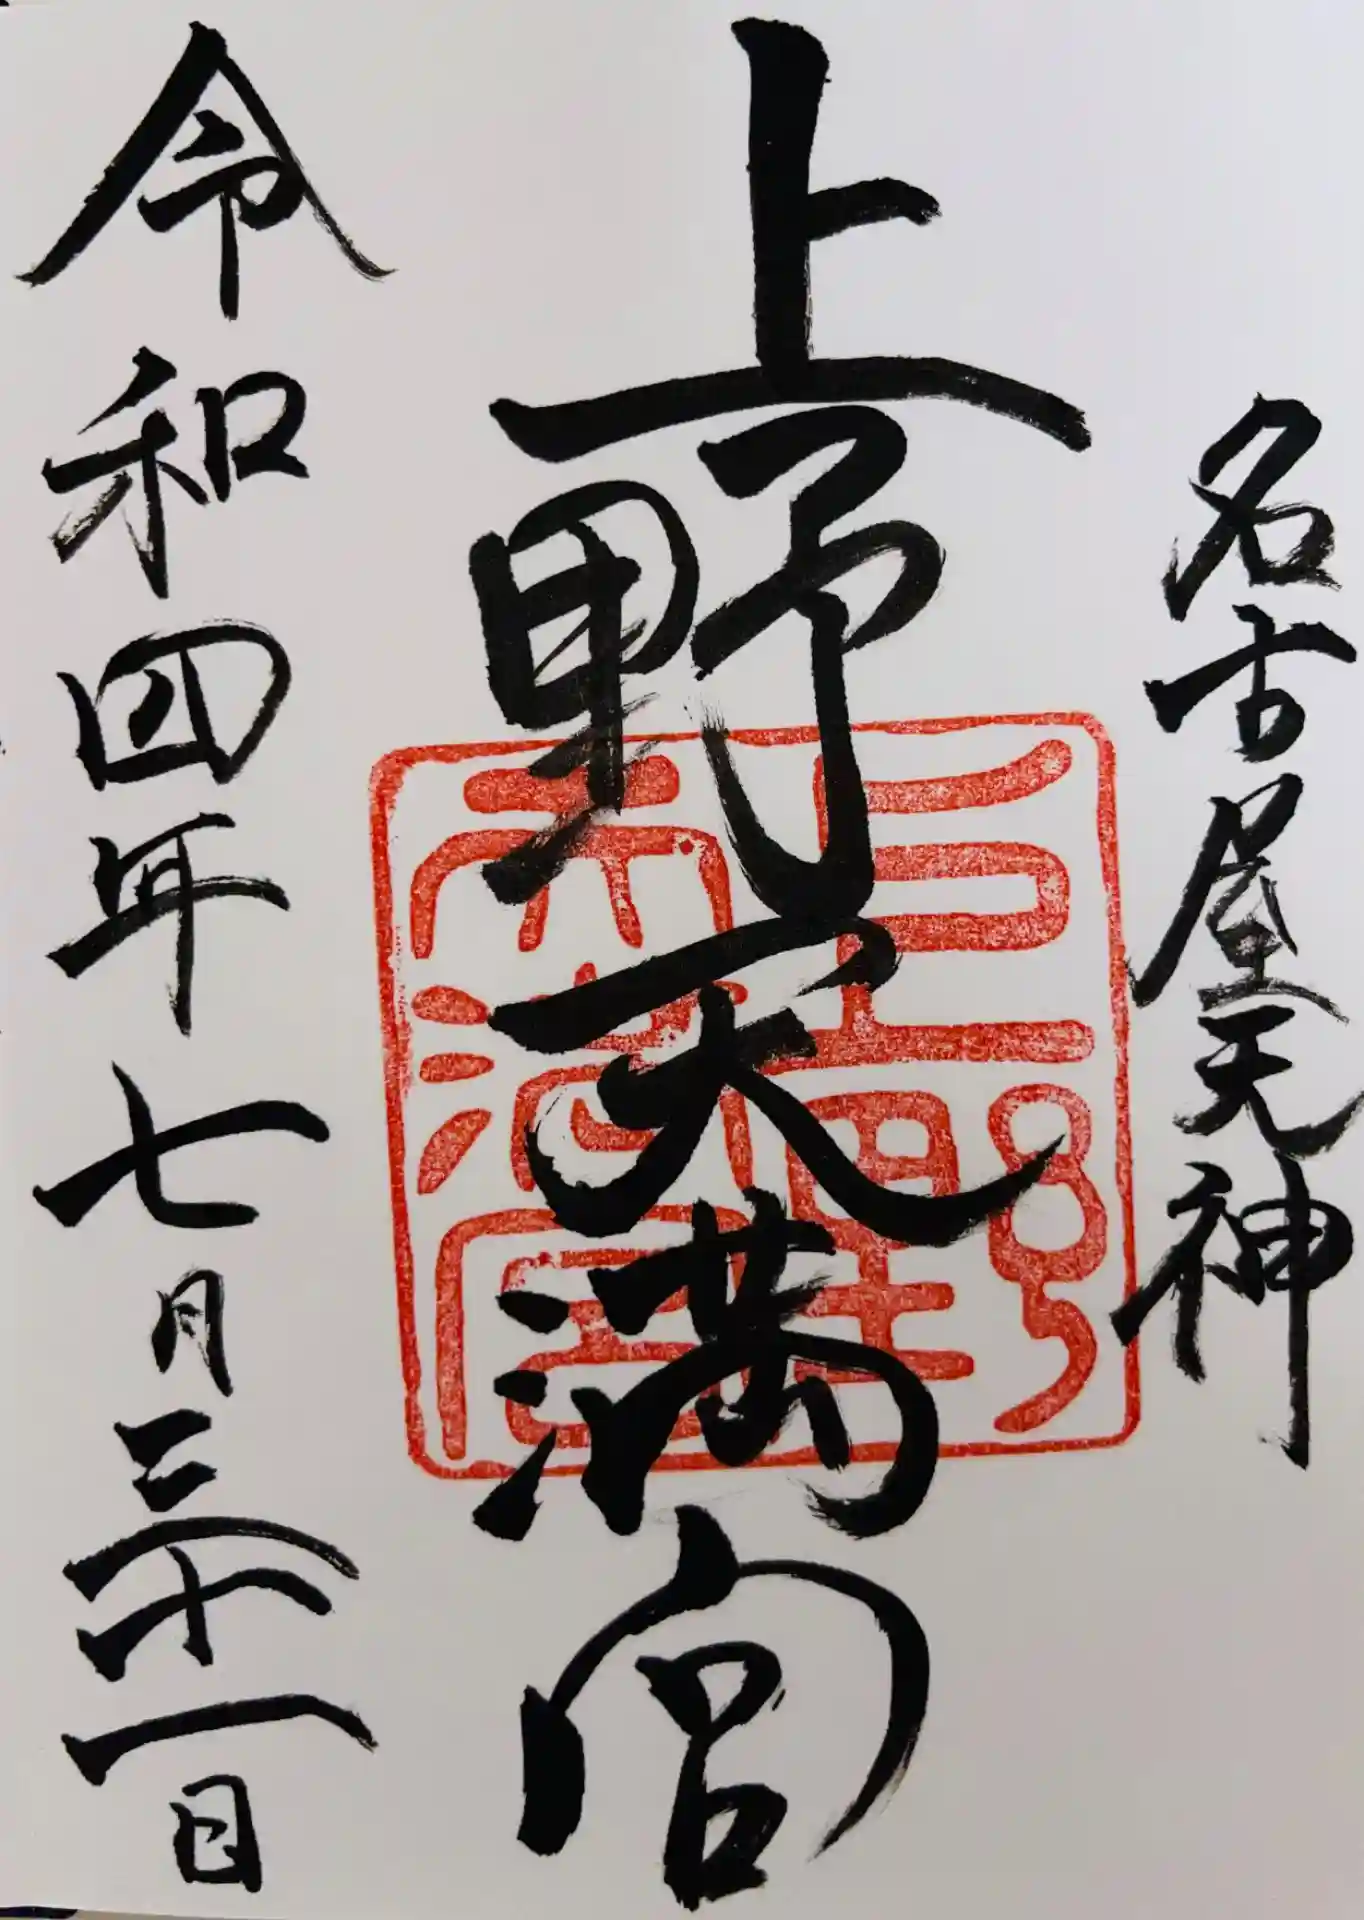 名古屋天神
上野天満宮
上野天満宮
令和四年七月三十一日